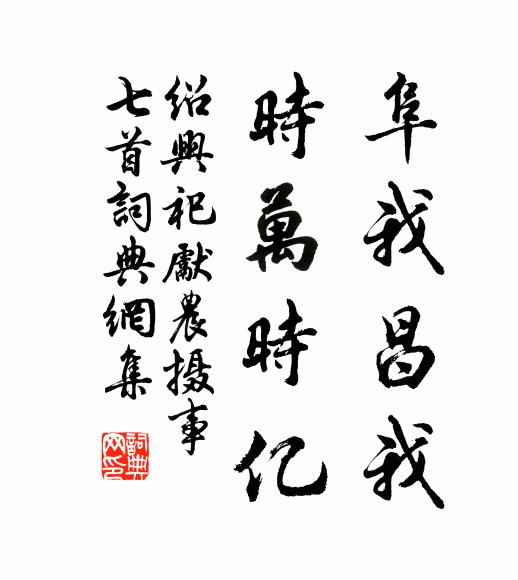 阜我昌我
時萬時亿
绍興祀獻農摄事
七首詞典網集
詞典网印